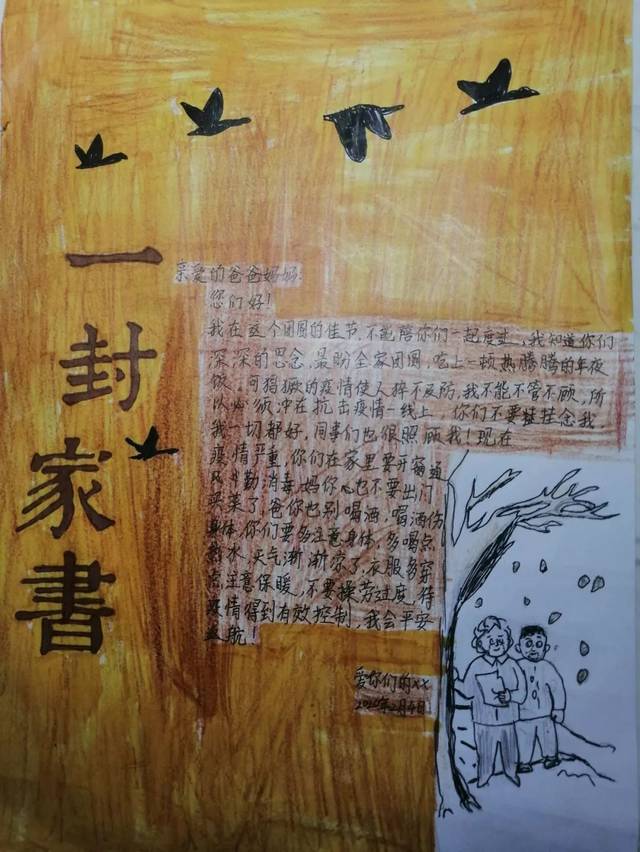 一封家書
亲爱的爸爸妈妈:
您们好!
我在这个团圆的佳节,不能陪你们一起度过,我知道你们
深深的思念,最盼全家团圆,吃上一顿热腾腾的年夜
饭,可猖獗的疫情使人猝不及防,我不能不管不顾,所
以必须冲在抗击疫情一线上,你们不要挂念我,
我一切都好,同事们也很照顾我!现在
疫情严重,你们在家里要开窗通
风,勤消毒,妈你也不要出门
买菜了,爸你也别喝酒,喝酒伤
身体,你们要多注意身体,多喝点
热水,天气渐渐凉了,衣服多穿
点注意保暖,不要操劳过度,待
疫情得到有效控制,我会平安
返航!
爱你们的xx
2020年2月4日